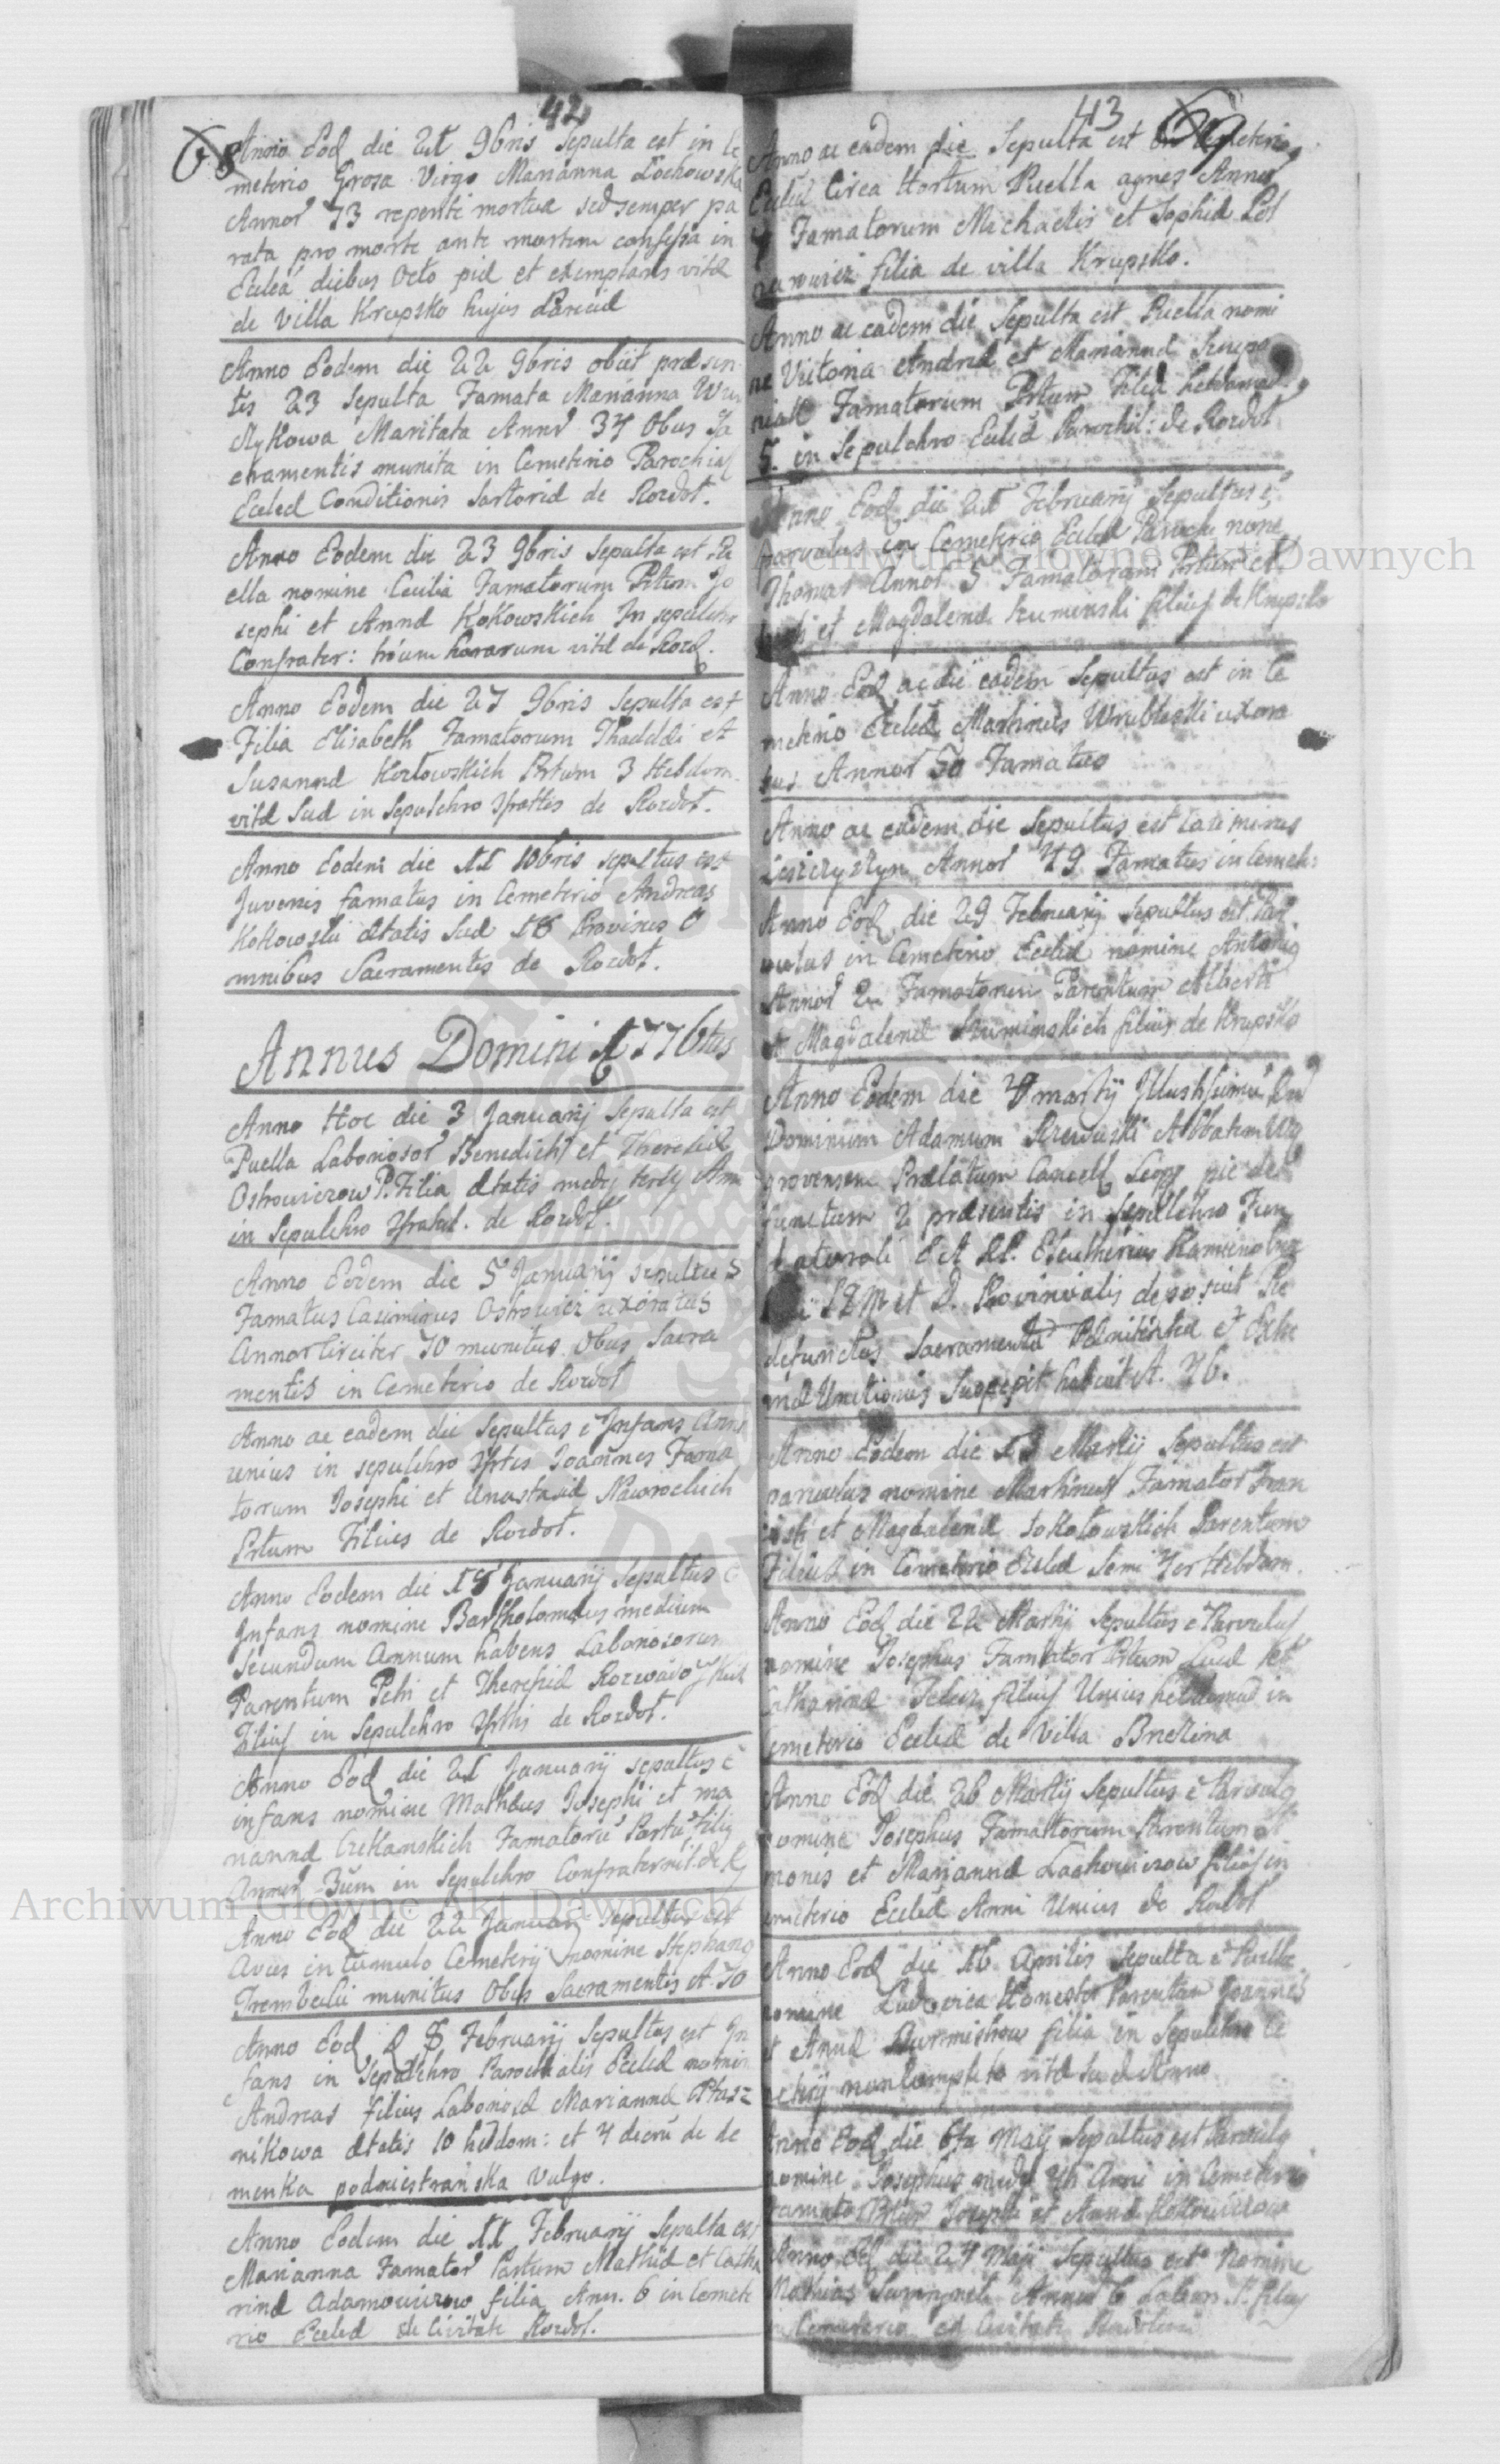 42
68
Anno Eod die 21 9bris sepulta est in Ce
meterio Grosa Virgo Marianna Lochowska
Annor 73 repente mortua sed semper pa
rata pro morte ante mortem confessa in
Eccleá diebus Octo piæ et exemplaris vitæ
de Villa Krupsko hujus Paræciæ
Anno Eodem die 22 9bris obiit præsen
tis 23 Sepulta Famata Marianna
Maritata Annor 37 Obus Sa
cramentis munita in Cemeterio Parochial
Ecclæ Conditionis Sartoriæ de Rozdoł.
Anno Eodem die 23 9bris Sepulta est Pu
ella nomine Cecilia Famatorum Prtum Jo
sephi et Annæ Kokowskich In sepulchr
Confrater: trium horarum vitæ de Rozd.
Anno Eodem die 27 9bris Sepulta est
Filia Elisabeth Famatorum Thaddæi et
Susannæ Kozłowskich Prtum 3 Hebdom.
vitæ suæ in Sepulchro de Rozdoł.
Anno Eodem die 11 10bris sepultus est
Juvenis famatus in Cemeterio Andreas
Kokowski ætatis Suæ 18 Provisus O
mnibus Sacramentis de Rozdoł.
Annus Domini 1776tus
Anno Hoc die 3 Januarij Sepulta est
Puella Laboriosor Benedicti et Theresiæ
Ostrowiczow P. Filia ætatis medij tertij Ann
in Sepulchro de Rozdoł.
Anno Eodem die 5 Januarij sepultus
Famatus Casimirus Ostrowicz uxoratus
Annor Circiter 70 munitus Obus Sacra
mentis in Cemeterio de Rozdoł
Anno ac eadem die Sepultus e Infans Anni
unius in sepulchro Joannes Fama
torum Josephi et Anastasiæ Nawrockich
Prtum Filius de Rozdoł.
Anno Eodem die 18 Januarij Sepultus e
Infans nomine Bartholomæus medium
Secundum Annum habens Laboriosorum
Parentum Petri et Theresiæ
Filius in Sepulchro de Rozdoł.
Anno Eod die 21 Januarij sepultus e
infans nomine Mathæus Josephi et Ma
riannæ Czekanskich Famatorũ Filig
Annor 3um in Sepulchro Confraternit. de R
Anno Eod die 22 Januarij Sepultus est
Avus in tumulo Cemeterij nomine Stephang
Trembecki munitus Obus Sacramentis A. 70
Anno Eod D 8 Februarij Sepultus est In
fans in Sepulchro Parochialis Ecclæ nomin
Andreas filius Laboriosæ Mariannæ Ptasz
nikowa ætatis 10 hebdom: et 4 dierũ de de
menka podniestrańska Vulgo.
Anno Eodem die 11 Februarij Sepulta est
Marianna Famator Partum Mathiæ et Catha
rinæ Adamowiczow filia Ann. 6 in Cemete
rio Ecclæ de Civitate Rozdoł.
43
69
Anno ac eadem die Sepulta est in Cemeterio
Ecclæ Circa Hortum Puella Agnes Annor
4 Famatorum Michaelis et Sophiæ
filia de villa Krupsko.
Anno ac eadem die Sepulta est Puella nomi
ne Victoria Andreæ et Mariannæ
Famatorum Prtum Filia hebdomad.
5. in Sepulchro Ecclæ Parochil: de Rozdoł
Anno Eod die 21 Februarij Sepultus e
parvulus in Cemeterio Ecclæ Paroch nomè
Thomas Annor 5 Famatorum Prtum
et Magdalenæ Szumenski filius de Krupsko
Anno Eod ac die eadem Sepultus est in Ce
meterio Ecclæ Martinus Wrublewski uxora
tus Annor 50 Famatus
Anno ac eadem die Sepultus est Casimirus
Leszczyszyn Annor 49 Famatus in Cemete:
Anno Eod die 29 Februarij Sepultus est Par
vulus in Cemeterio Ecclæ nomine Antonig
Annor 2 Famatorum Parentum Alberti
et Magdalenæ Szuminskich filius de Krupsko
Anno Eodem die 4 Martij Illustrissimũ
Dominum Adamum Rzewuski Abbatem
Prælatum Cancell Leop pie de
functum 2 præsentis in Sepulchro Fun
datorali Eleutherius
et D. Provincialis deposuit Hic
defunctus Sacramenta Pænitentiæ et Extre
mæ Unctionis Suscepit habuit A. 76.
Anno Eodem die 13 Martij Sepultus est
parvulus nomine Martinus Famator Fran
cisci et Magdalenæ Sokołowskich Parentum
Filius in Cemeterio Ecclæ Semi 4or Hebdom.
Anno Eod die 22 Martij Sepultus e Parvulus
nomine Josephus Famator Prtum Lucæ et
Catharinæ filius Unius hebdomad in
Cemeterio Ecclæ de Villa Brzezina
Anno Eod die 26 Martij Sepultus e Parvulg
nomine Josephus Famattorum Parentum Si
monis et Mariannæ Lachowiczow filius in
Cemeterio Ecclæ Anni Unius de Rozdoł
Anno Eod die 16 Aprilis Sepulta e Puella
nomine Ludovica Honestor Parentum Joannes
et Annæ Burmistrow filia in Sepulchro Ce
meterij non completo vitæ suæ Anno
Anno Eod die 6ta Maij Sepultus est Parvulg
nomine Josephus medij 4ti Anni in Cemeterio
Famato Prtum Josephi et Annæ
Anno Eod die 24 Maji Sepultus est Nomine
Mathias Annor 6 Labor. P. filius
Cemeterio ex Civitate
Archiwum Główne Akt Dawnych
Archiwum Główne Akt Dawnych